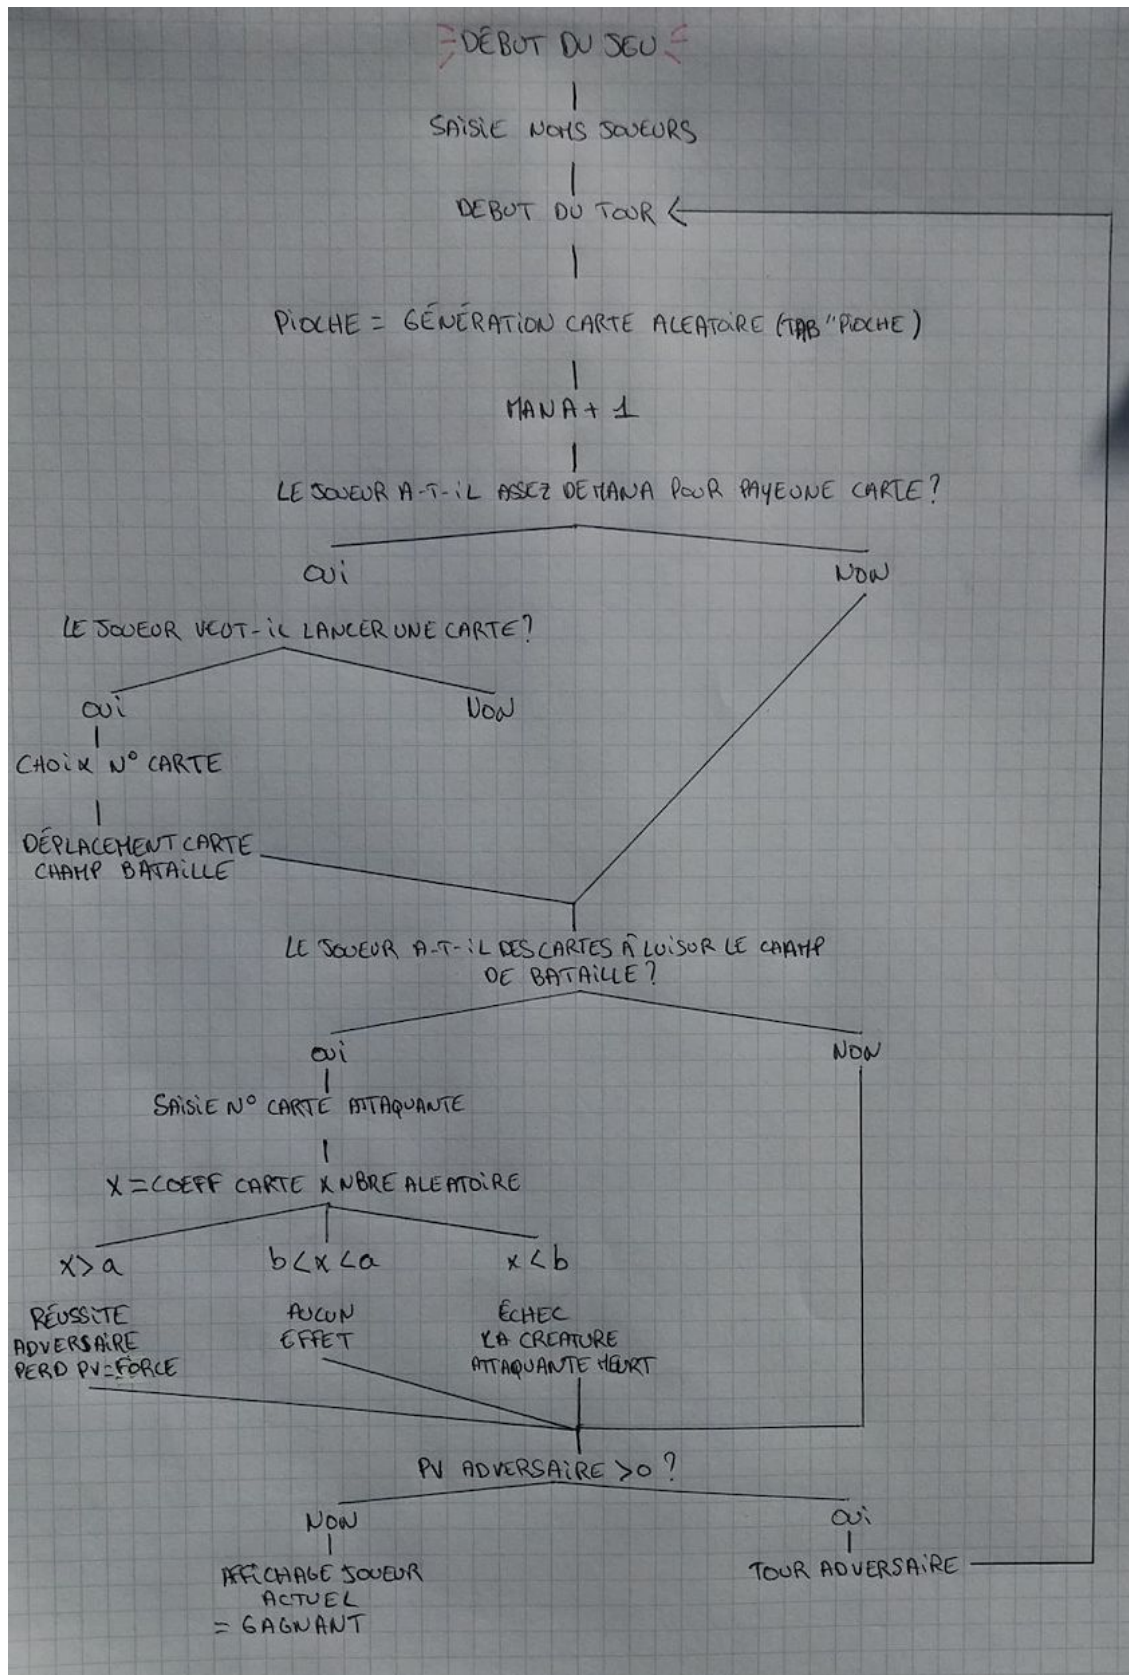 DÉBUT DU JEU
SAISIE NOMS JOUEURS
DEBUT DU TOUR
PIOCHE = GÉNÉRATION CARTE ALEATOIRE (TAB "PIOCHE)
MANA + 1
LE JOUEUR A-T-IL ASSEZ DE MANA POUR PAYE UNE CARTE ?
OUI
NON
LE JOUEUR VEUT-IL LANCER UNE CARTE ?
OUI
NON
CHOIX N° CARTE
DÉPLACEMENT CARTE
CHAMP BATAILLE
LE JOUEUR A-T-IL DES CARTES À LUI SUR LE CHAMP
DE BATAILLE ?
OUI
NON
SAISIE N° CARTE ATTAQUANTE
X = COEFF CARTE X NBRE ALEATOIRE
x > a
b < x < a
x < b
RÉUSSITE
ADVERSAIRE
PERD PV = FORCE
AUCUN
EFFET
ÉCHEC
LA CREATURE
ATTAQUANTE MEURT
PV ADVERSAIRE > 0 ?
NON
OUI
AFFICHAGE JOUEUR
ACTUEL
= GAGNANT
TOUR ADVERSAIRE